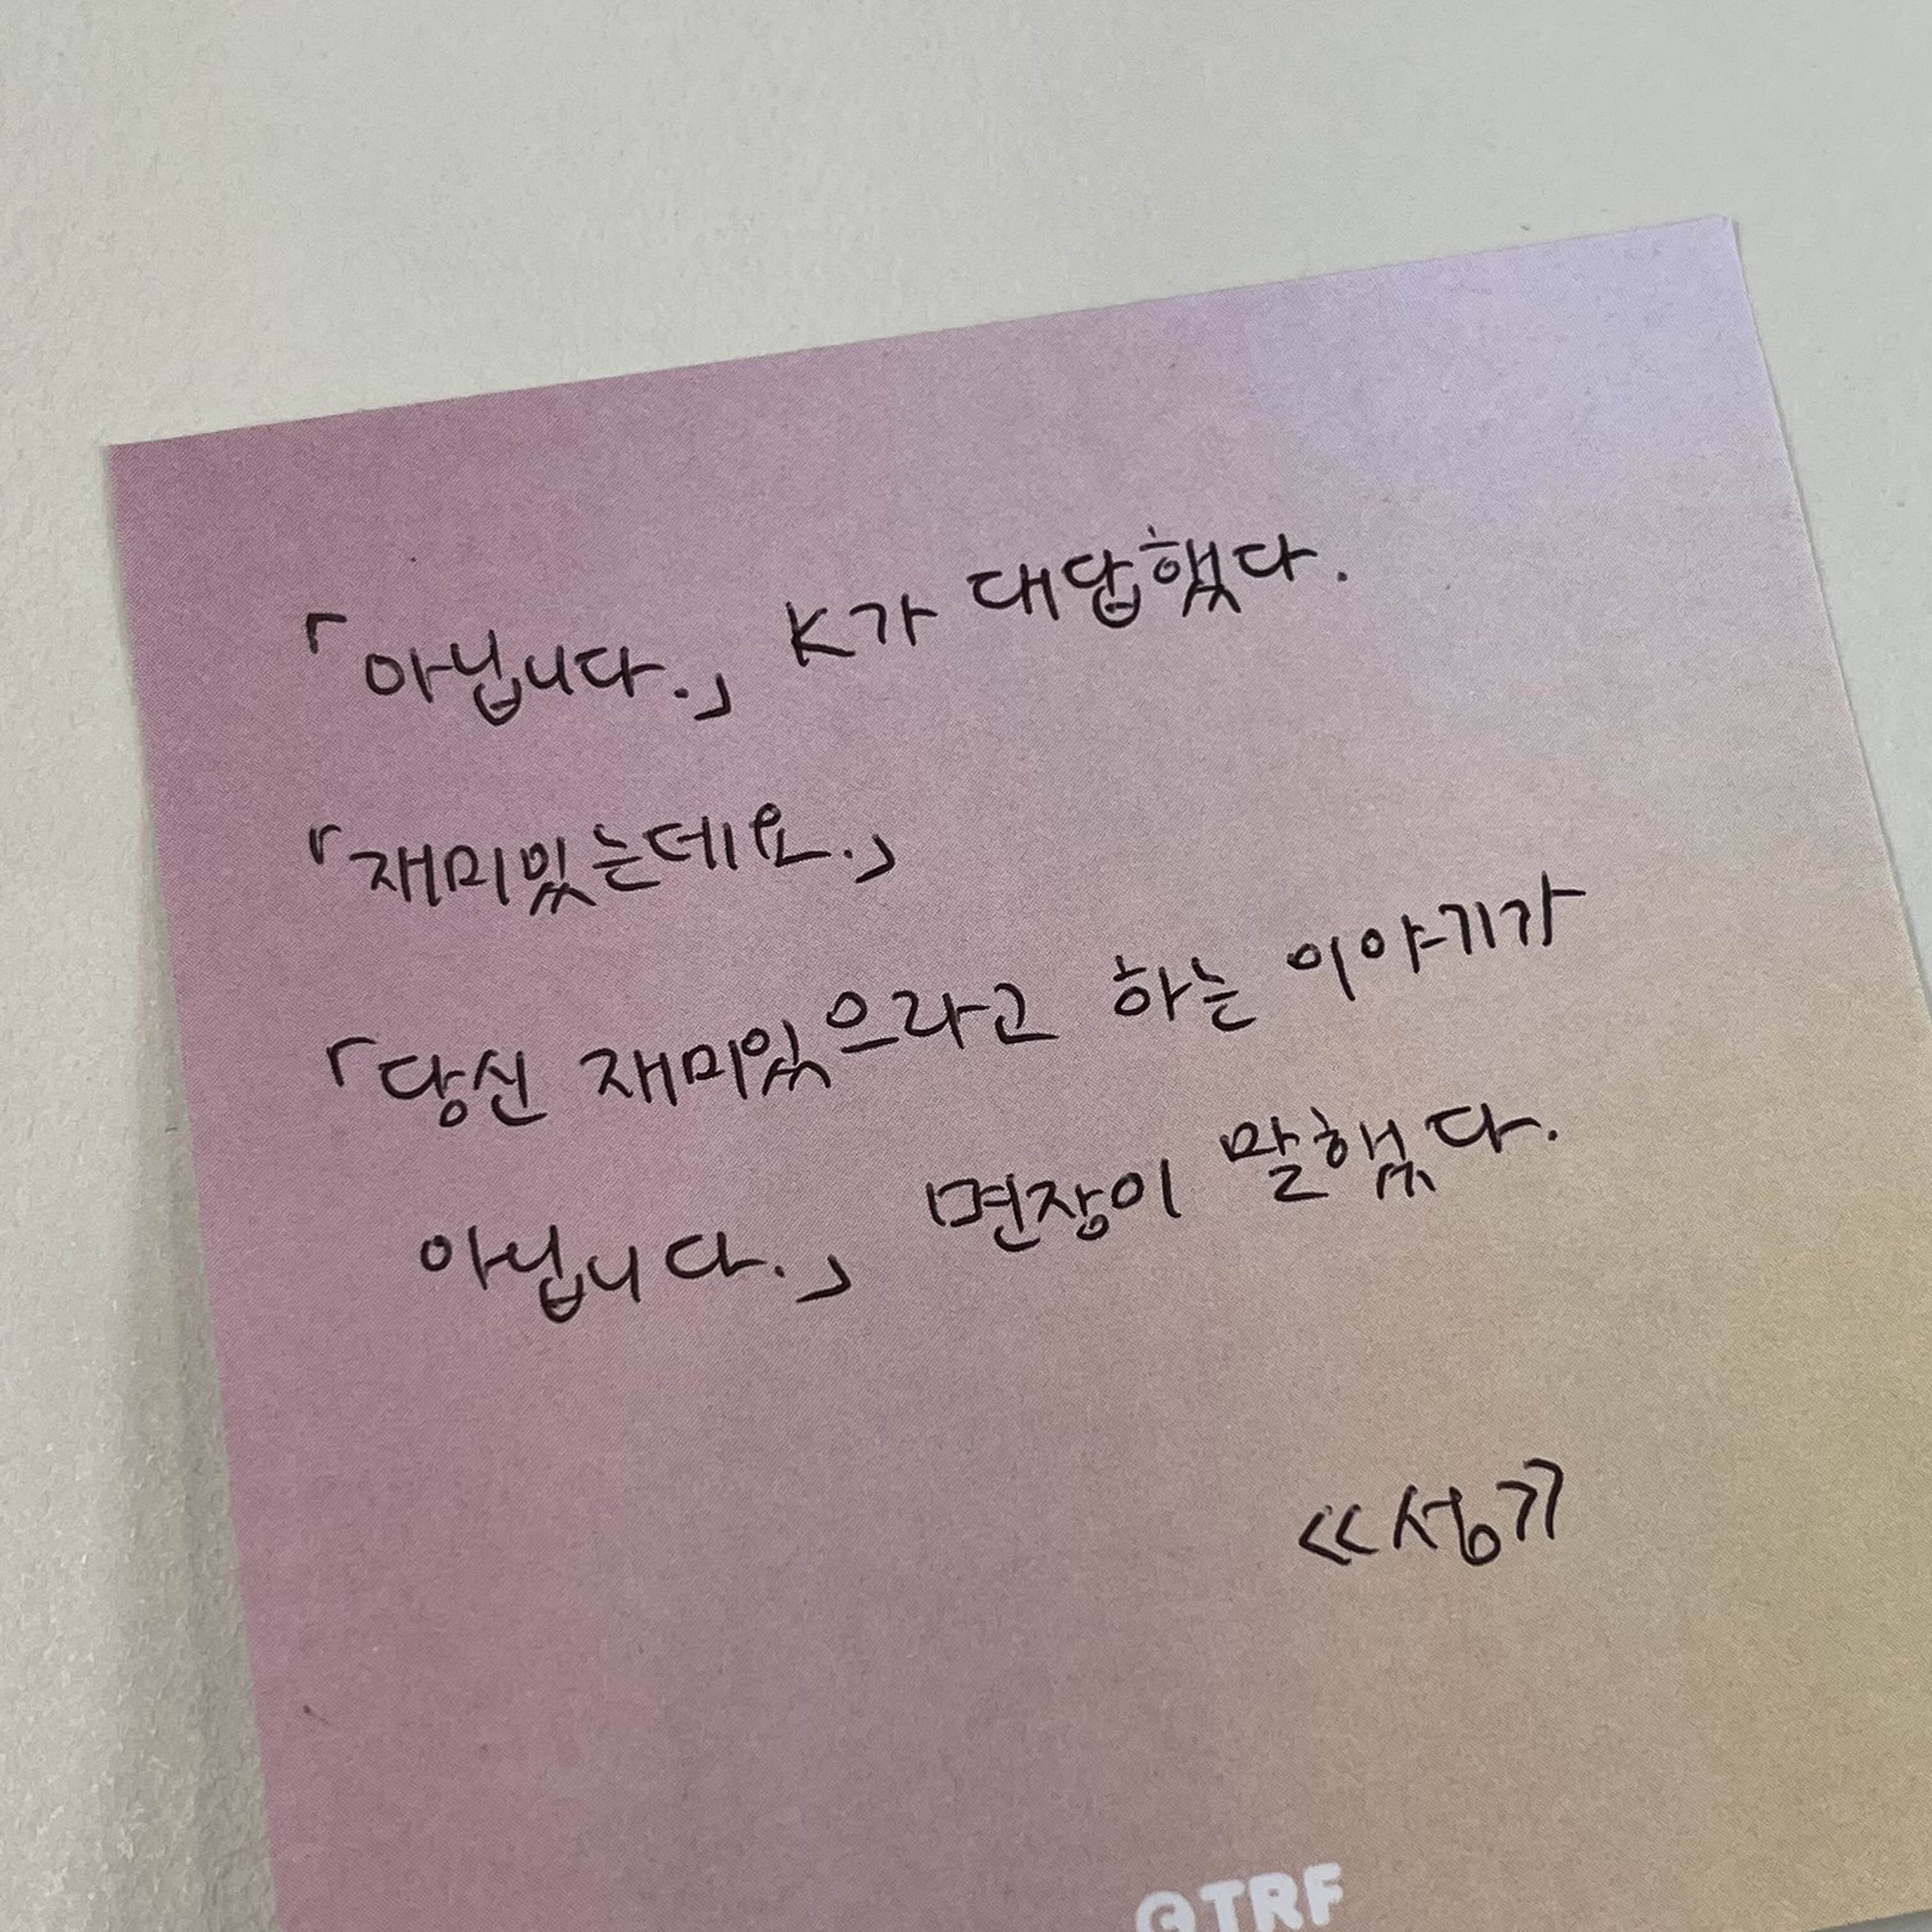 「아닙니다.」 K가 대답했다.
「재미있는데요.」
「당신 재미있으라고 하는 이야기가
아닙니다.」 면장이 말했다.
《성》
©TRF